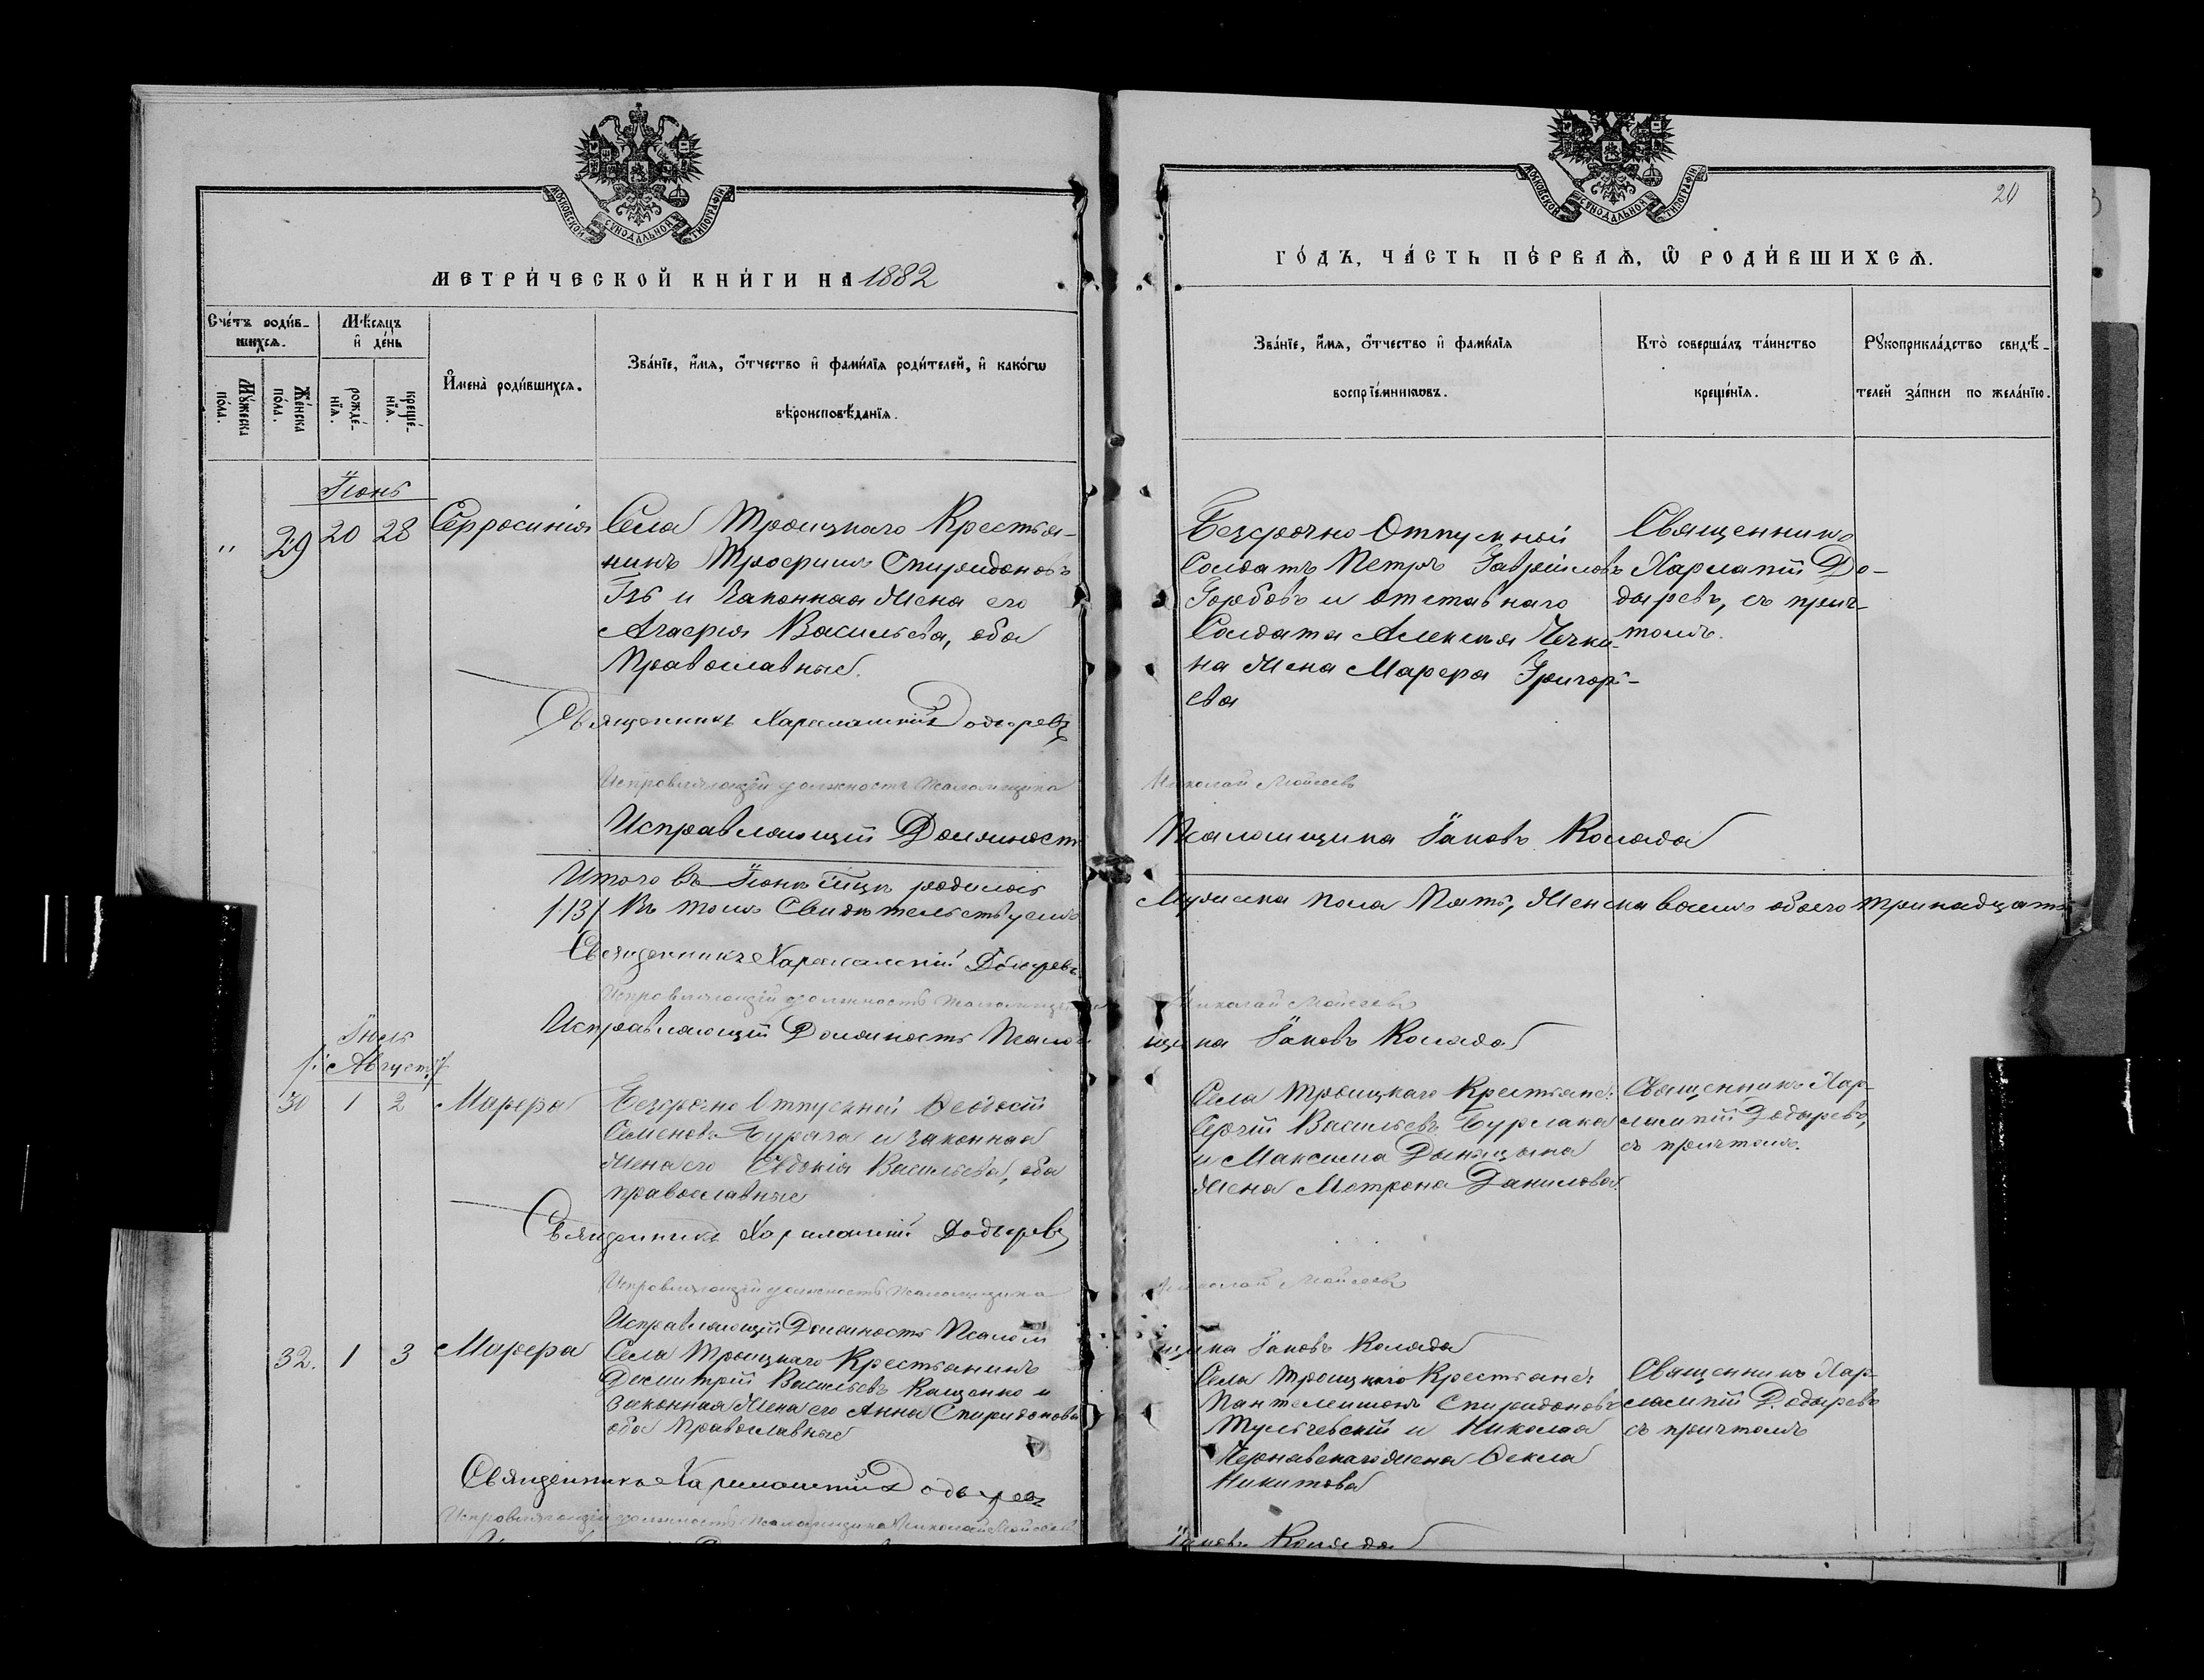 МОСКОВСКОЙ СѴНОДАЛЬНОЙ ТИПОГРАФІИ
МЕТРИ́ЧЕСКОЙ КНИ́ГИ НА 1882
Сче́тъ роди́в-
шихсѧ.
Мѣ́сѧцъ
и҆ де́нь
Мꙋ́жеска
по́ла.
Же́нска
по́ла.
рожде́-
нїѧ.
креще́-
нїѧ.
И҆мена̀ роди́вшихсѧ.
Зва́нїе, и҆́мѧ, ѻ҆́тчество и҆ фами́лїѧ роди́телей, и҆ како́гѡ
вѣроисповѣ́данїѧ.
Іюнь
" 29 20 28 Ефросинія
Села Троицкаго Крестья-
нинъ Трофимъ Спиридоновъ
и законная жена его
Агафія Васильева, оба
Православные.
Священникъ Харлампій Додыревъ
Исправляющій должность Псаломщика
Исправляющій Должность
Итого въ Іюнѣ мцѣ родилось
/13/ Въ томъ Свидѣтельствуемъ
Священникъ Харлампій Додыревъ
Исправляющій должность Псаломщика
Исправляющій Должность Псалом
Іюль
/: Августъ :/
30 1 2 Марфа
Безсрочно Отпускной Ѳеодосій
Семеновъ Бурлака и законная
Жена его Евдокія Васильева, оба
православные
Священникъ Харлампій Додыревъ
Исправляющій должность Псаломщика
Исправляющій Должность Псалом
32. 1 3 Марфа
Села Троицкаго Крестьянинъ
Димитрій Васильевъ Кащенко и
Законная Жена его Анна Спиридонова
оба Православные
Священникъ Харлампій Додыревъ
Исправляющій должность Псаломщика Николай Мойсеевъ
МОСКОВСКОЙ СѴНОДАЛЬНОЙ ТИПОГРАФІИ
20
ГО́ДЪ, ЧА́СТЬ ПЕ́РВАѦ, Ѡ҆ РОДИ́ВШИХСѦ.
Зва́нїе, и҆́мѧ, ѻ҆́тчество и҆ фами́лїѧ
воспрїе́мникѡвъ.
Кто̀ соверша́лъ та́инство
креще́нїѧ.
Рꙋкоприкла́дство свидѣ́-
телей за́писи по жела́нїю.
Безсрочно Отпускной
Солдатъ Петръ Гавріиловъ
Горбовъ и отставнаго
Солдата Алексѣя Чечки-
на жена Марфа Григорь-
ева
Священникъ
Харлампій До-
дыревъ, съ прич-
томъ.
Николай Мойсеевъ
Псаломщика Іаковъ Коляда
Мужеска пола Пять, Женска восемь обоего тринадцать
Николай Мойсеевъ
щика Іаковъ Коляда
Села Троицкаго Крестьяне:
Сергій Васильевъ Бурлака
и Максима Дынцына
жена Матрона Данилова.
Священникъ Хар-
лампій Додыревъ,
съ причтомъ.
Николай Мойсеевъ
щика Іаковъ Коляда
Села Троицкаго Крестьяне:
Пантелеимонъ Спиридоновъ
Тульчевскій и Николая
Чернавскаго жена Ѳекла
Никитова
Священникъ Хар-
лампій Додыревъ
съ причтомъ
Іаковъ Коляда